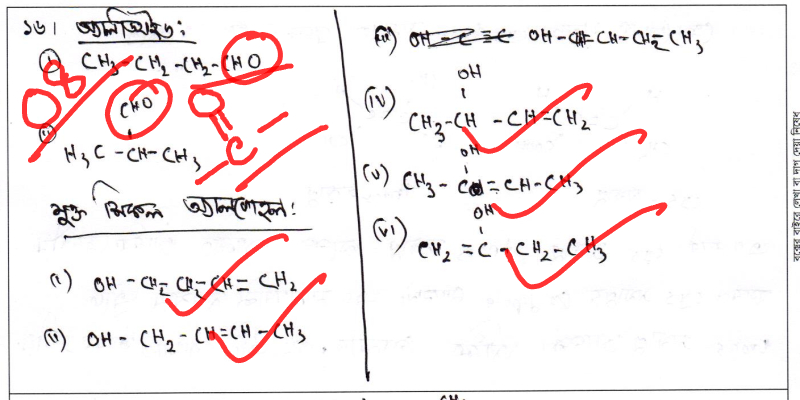 ১৬। অ্যালডিহাইড:
(i) CH3 - CH2 - CH2 - CHO
CHO
(ii) H3C - CH - CH3
মুক্ত শিকল অ্যালকোহল:
(i) OH - CH2 - CH2 - CH = CH2
(ii) OH - CH2 - CH = CH - CH3
(iii) OH - CH = CH - CH2 - CH3
OH
(iv) CH3 - CH - CH = CH2
OH
(v) CH3 - C = CH - CH3
OH
(vi) CH2 = C - CH2 - CH3
বক্সের বাইরে লেখা বা দাগ দেয়া নিষেধ